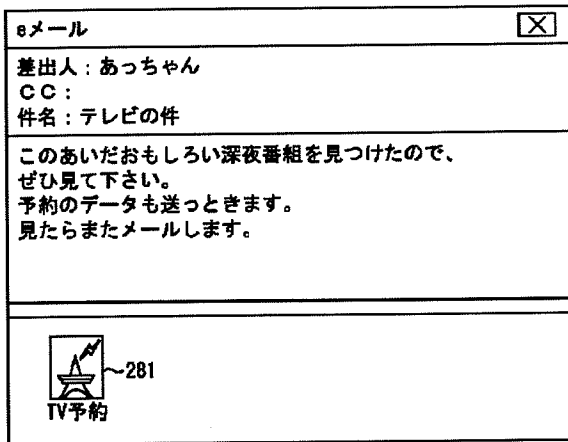 eメール
差出人：あっちゃん
ＣＣ：
件名：テレビの件
このあいだおもしろい深夜番組を見つけたので、
ぜひ見て下さい。
予約のデータも送っときます。
見たらまたメールします。
281
TV予約